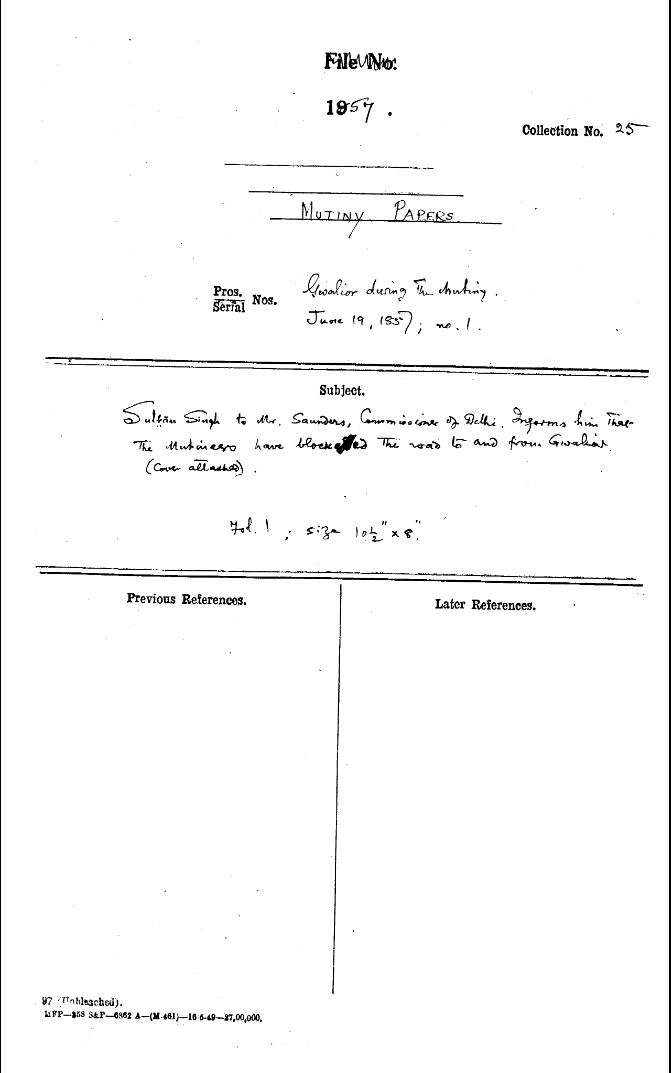 File No:
1957.
Collection No. 25
MUTINY PAPERS
Pros.
Serial Nos.
Gwalior during The Mutiny.
June 19, 1857; no. 1.
Subject.
Sultān Singh to Mr. Saunders, Commissioner of Delhi. Informs him that
The Mutineers have blocked The road to and from Gwalior.
(Cover attached).
Fol. 1; size 10½" x 8".
Previous References.
Later References.
97 (Unbleached).
MFP—258 S&P—6862 A—(M-461)—16-5-49—27,00,000.